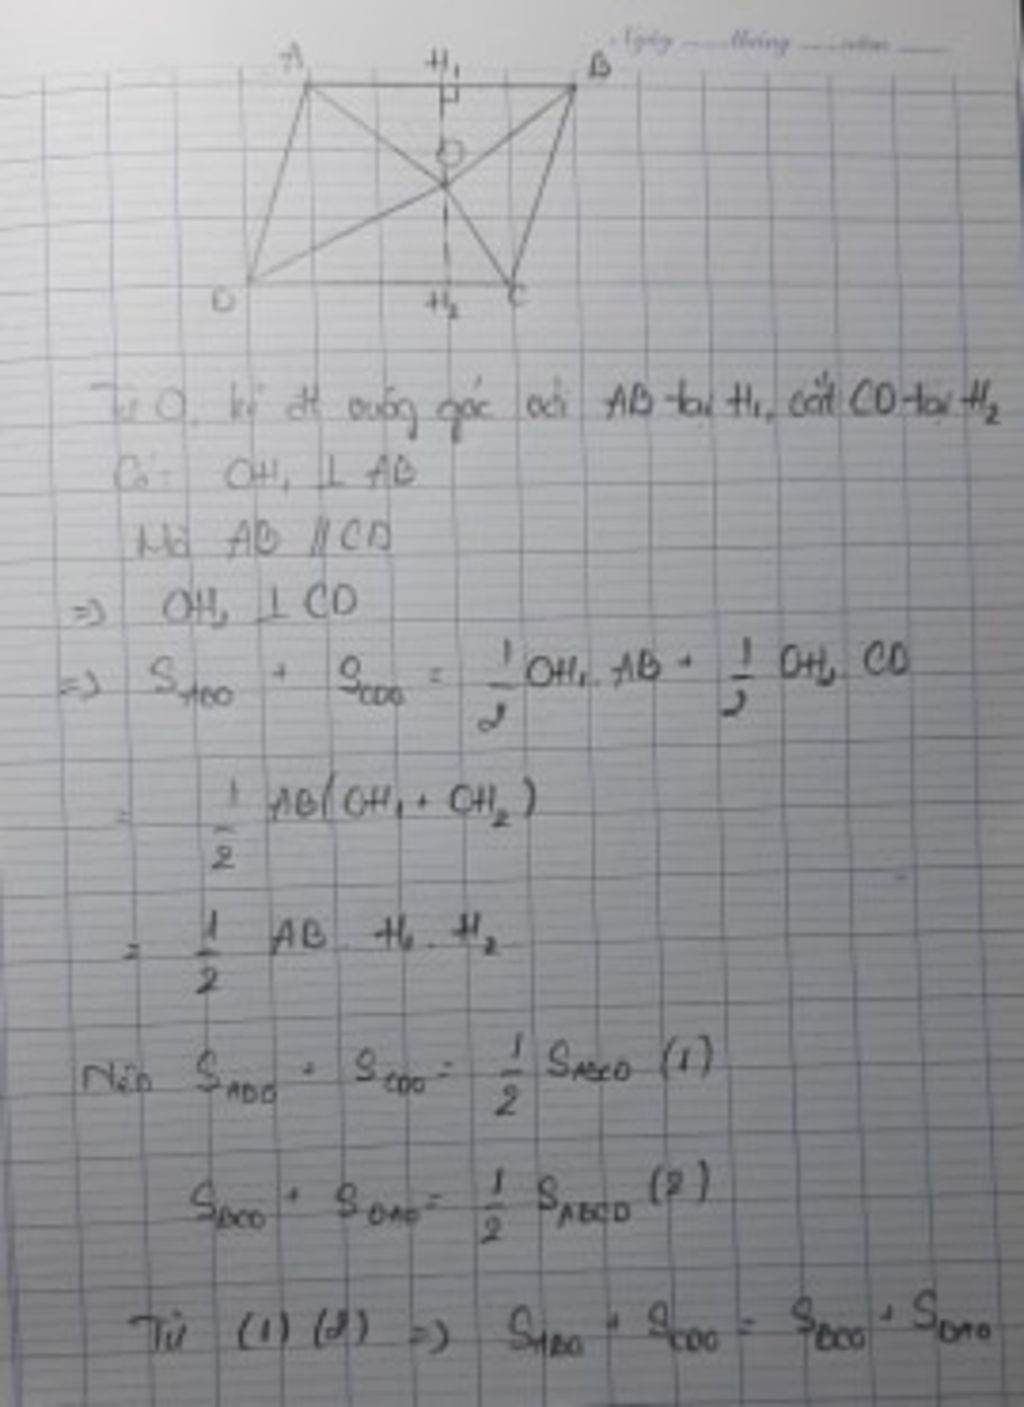 Ngày tháng năm
A H₁ B
O
D H₂ C
Từ O, kẻ đt vuông góc với AB tại H₁, cắt CD tại H₂
Có: OH₁ ⊥ AB
Mà AB // CD
=> OH₂ ⊥ CD
=> S_ABO + S_CDO = 1/2 OH₁. AB + 1/2 OH₂ CD
= 1/2 AB(OH₁ + OH₂)
= 1/2 AB. H₁. H₂
Nên S_ABO + S_CDO = 1/2 S_ABCD (1)
S_BCO + S_DAO = 1/2 S_ABCD (2)
Từ (1) (2) => S_ABO + S_CDO = S_BCO + S_DAO